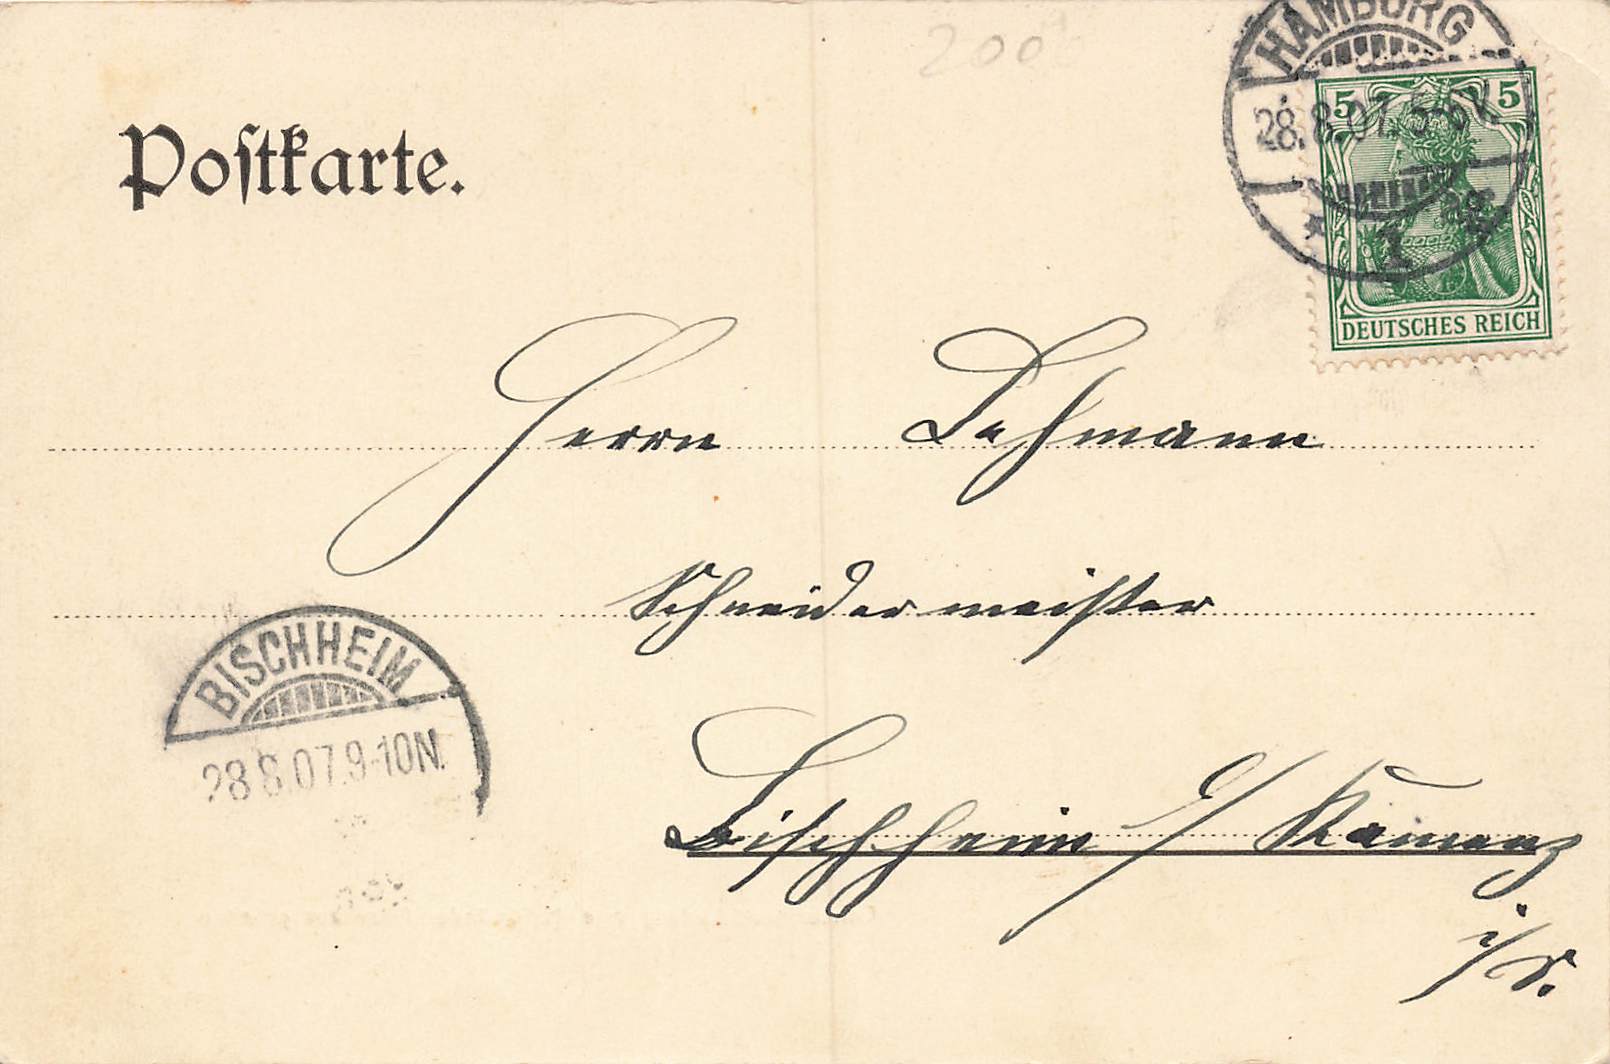 200
HAMBURG
28.8.07.5-6V
* 1 *
5 5
DEUTSCHES REICH
Poſtkarte.
Herrn Lehmann
Schneidermeister
Bischheim b/ Kamenz
i/S.
BISCHHEIM
28.8.07.9-10N.